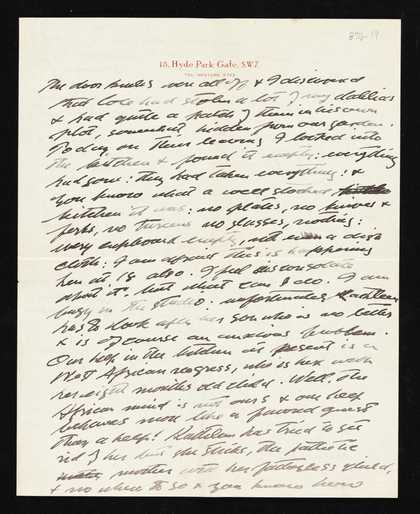 18, Hyde Park Gate, S.W.7.
The door knobs were all off & I discovered
that Cole had stolen a lot of my dahlias
& had quite a patch of them in his own
plot, somewhat hidden from our garden.
Today on their leaving I looked into
the kitchen & found it empty: everything
had gone: they had taken everything: &
you know what a well stocked
kitchen it was: no plates, no knives &
forks, no tureens no glasses, nothing:
every cupboard empty, not even a dish
cloth: I am afraid this is happening
here at 18 also. I feel disconsolate
about it but what can I do. I am
busy in the studio: unfortunately Kathleen
has to look after her son who is no better
& is of course an anxious problem.
Our help in the kitchen at present is a
West African negress, who is here with
her eight months old child. Well, the
African mind is not ours & our help
behaves more like a favored guest
than a help! Kathleen has tried to get
rid of her but she sticks, the pathetic
mother with her fatherless child,
& no where to go & you know how